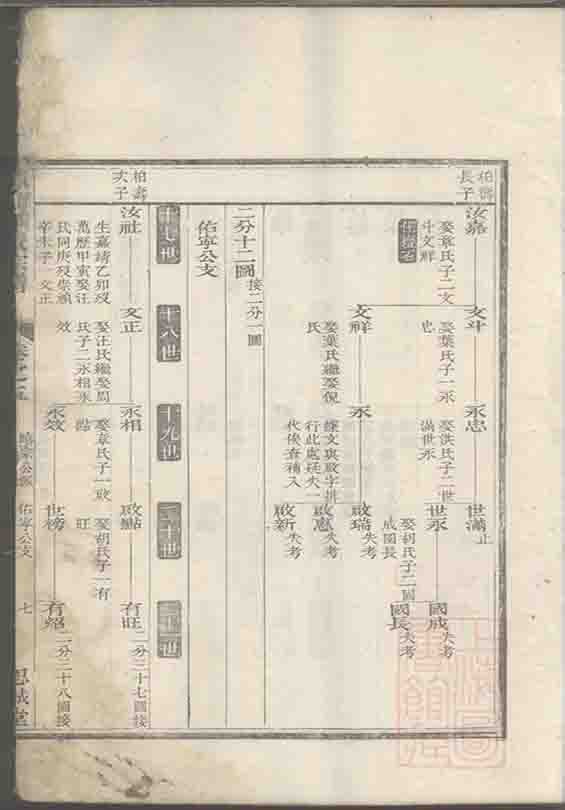 柏壽長子
汝嘉
娶章氏子二文斗文鮮
文斗
娶葉氏子一永忠
永忠
娶洪氏子二世滿世永
世滿 止
世永
娶胡氏子二國成國長
國成 失考
國長 失考
文鮮
娶葉氏繼娶倪氏
永
啟瑞 失考
啟惠 失考
啟新 失考
二分十二圖 接二分一圖
佑寧公支
十七世
十八世
十九世
二十世
二十一世
柏壽次子
汝社
生嘉靖乙卯歿萬歷甲寅娶汪氏同庚歿崇禎辛未子一文正
文正
娶汪氏繼娶周氏子二永相永效
永相
娶章氏子一啟點
啟點
娶胡氏子一有旺
有旺 二分三十七圖接
永效
世榜
有紹 二分二十八圖接
佑寧公支
七
思誠堂